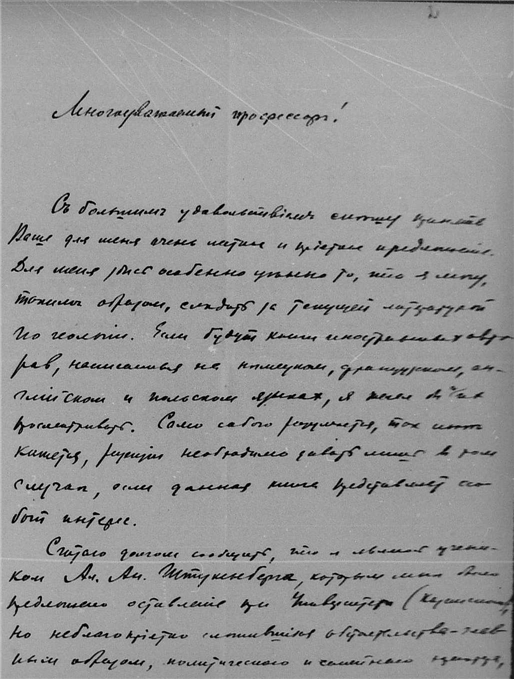 Многоуважаемый профессоръ!
Съ большимъ удовольствіемъ спешу принять
Ваше для меня очень лестное и приятное предложение.
Для меня здесь особенно ценно то, что я могу,
такимъ образом, следить за текущей литературой
по геологии. Если будут книги иностранных авто-
ров, написанные на немецком, французском, ан-
глійском и польском языках, я могу их
просматривать. Само собою разумеется, так мне
кажется, рецензии необходимо давать лишь в том
случае, если данная книга представляет со-
бой интерес.
Считаю долгом сообщить, что я являюсь учени-
ком Ал. Ан. Штукенберга, которым мне было
предложено оставление при Университете (Казанском),
но неблагоприятно сложившіяся обстоятельства глав-
ным образом, политического и семейного характера,